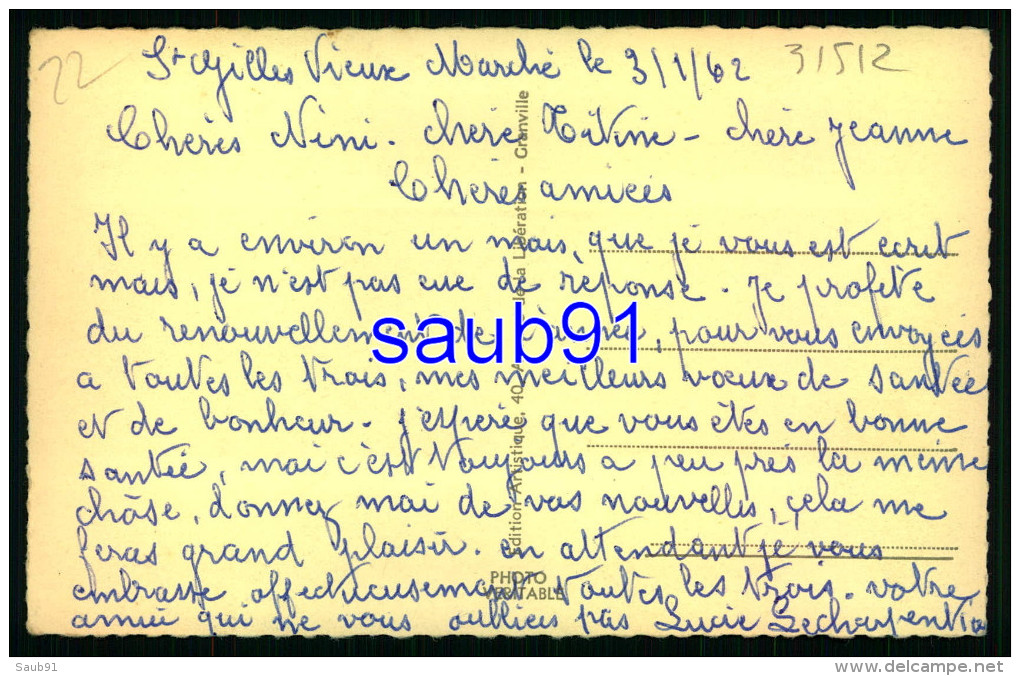 22
St Gilles Vieux Marché le 3/1/62
31512
Chères Nini. chère Titine - chère Jeanne
Chères amiées
Il y a environ un mois, que je vous est ecrit
mais, je n'est pas eue de réponse. Je profite
du renouvellement de l'année, pour vous envoyées
a toutes les trois, mes meilleurs voeux de santée
et de bonheur. j'espere que vous êtes en bonne
santée, moi c'est toujours a peu près la meme
chose, donnez moi de vos nouvelles, cela me
feras grand plaisir. en attendant je vous
embrasse affectueusement toutes les trois. votre
amie qui ne vous oublies pas Lucie Lecharpentier
Edition Artistique, 40, de la Libération - Granville
PHOTO
VÉRITABLE
saub91
Saub91
www.delcampe.net